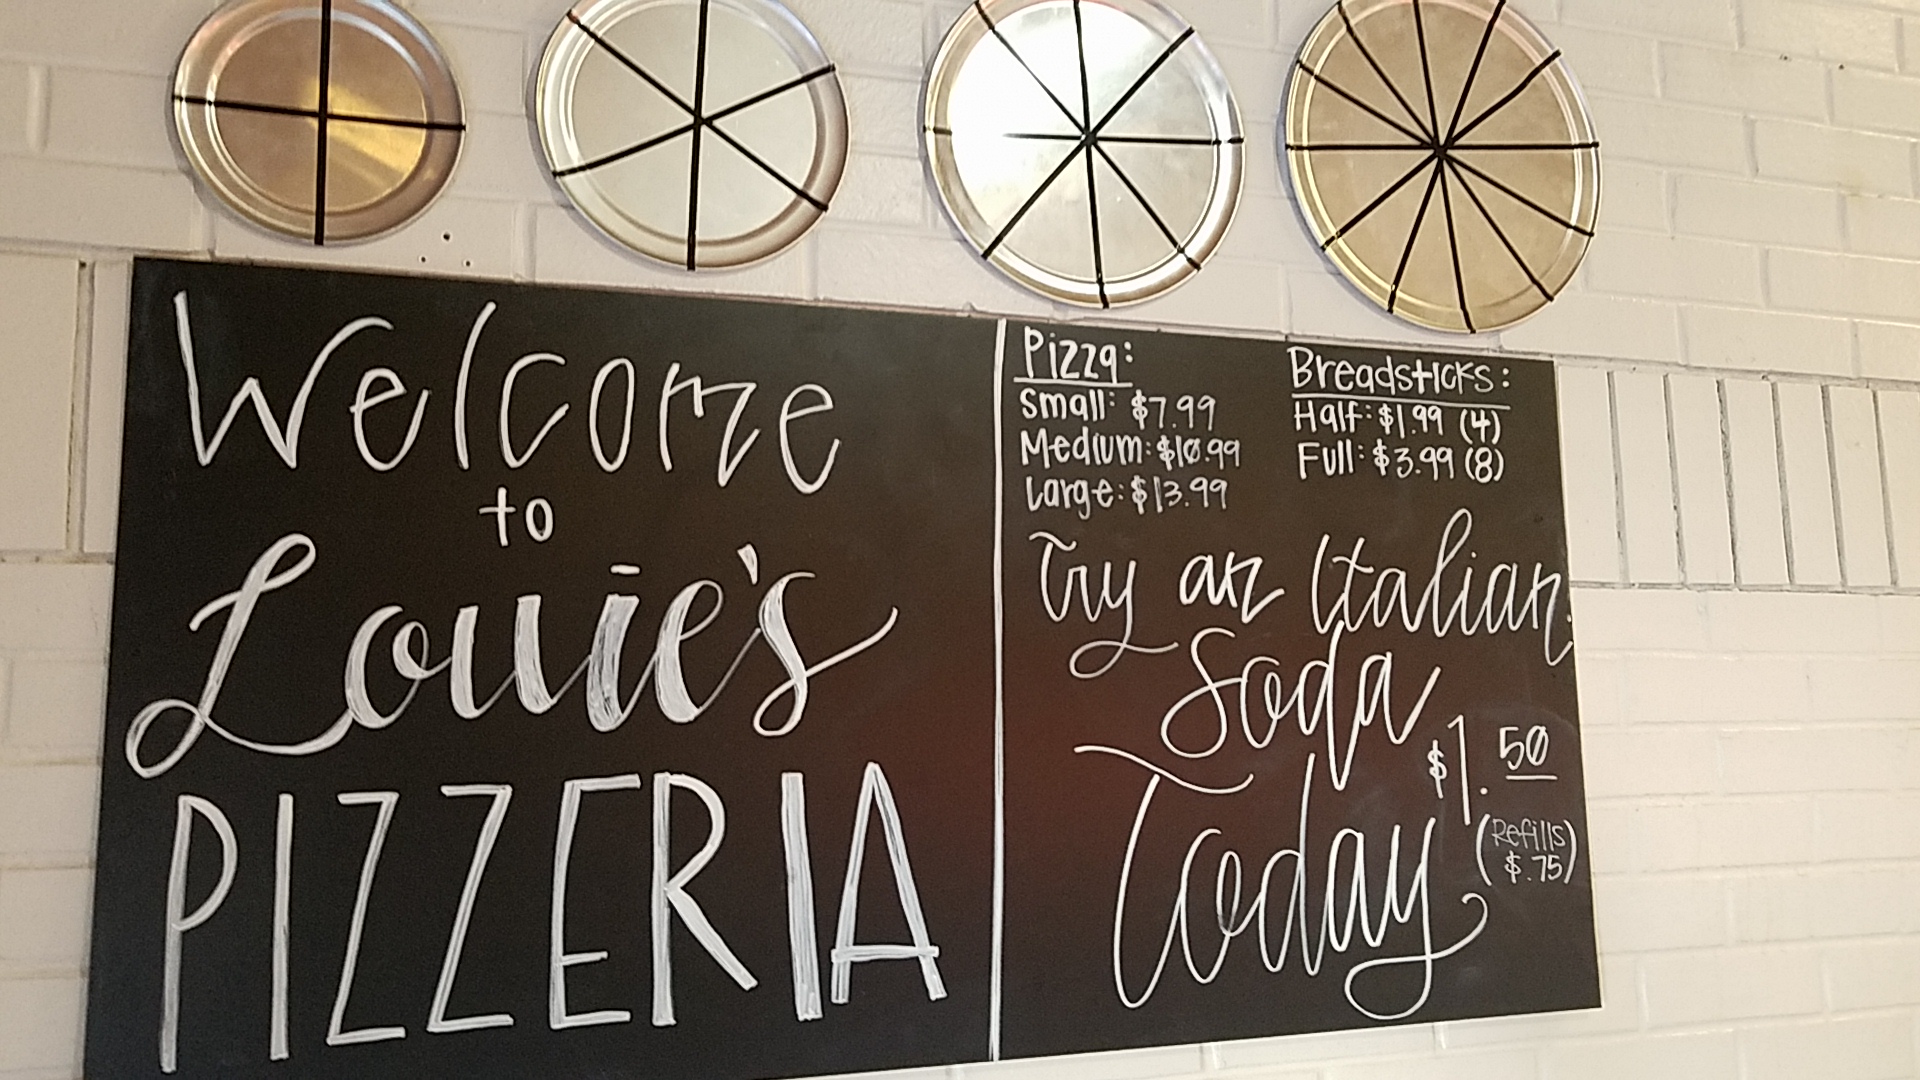 Welcome
to
Louie's
PIZZERIA
Pizza:
Small: $7.99
Medium: $10.99
Large: $13.99
Breadsticks:
Half: $1.99 (4)
Full: $3.99 (8)
Try an Italian
Soda
Today
$1.50
(Refills
$.75)